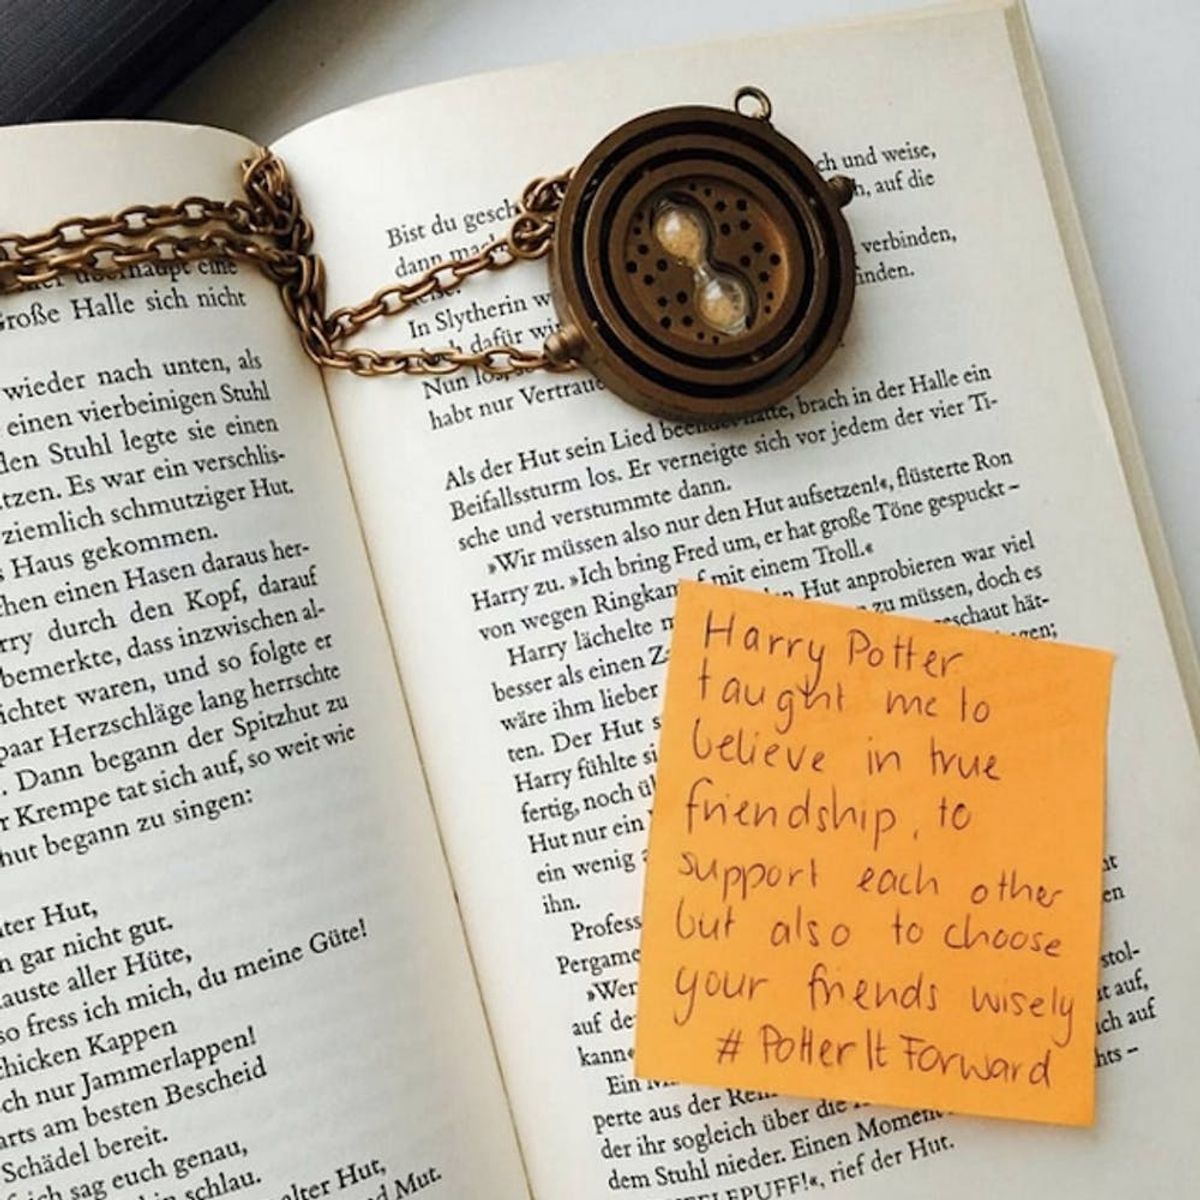 überhaupt eine
Große Halle sich nicht
wieder nach unten, als
einen vierbeinigen Stuhl
den Stuhl legte sie einen
tzen. Es war ein verschlis-
ziemlich schmutziger Hut.
s Haus gekommen.
chen einen Hasen daraus her-
rry durch den Kopf, darauf
bemerkte, dass inzwischen al-
ichtet waren, und so folgte er
paar Herzschläge lang herrschte
. Dann begann der Spitzhut zu
r Krempe tat sich auf, so weit wie
hut begann zu singen:
ter Hut,
n gar nicht gut.
auste aller Hüte,
so fress ich mich, du meine Güte!
chicken Kappen
ch nur Jammerlappen!
arts am besten Bescheid
Schädel bereit.
ich sag euch genau,
schlau.
alter Hut,
d Mut.
Bist du gesch ch und weise,
dann mach , auf die
Weise.
In Slytherin w verbinden,
doch dafür wir finden.
Nun los, so
habt nur Vertraue
Als der Hut sein Lied beendet hatte, brach in der Halle ein
Beifallssturm los. Er verneigte sich vor jedem der vier Ti-
sche und verstummte dann.
»Wir müssen also nur den Hut aufsetzen!«, flüsterte Ron
Harry zu. »Ich bring Fred um, er hat große Töne gespuckt –
von wegen Ringkampf mit einem Troll.«
Harry lächelte m den Hut anprobieren war viel
besser als einen Z zu müssen, doch es
wäre ihm lieber eschaut hät-
ten. Der Hut s gen;
Harry fühlte si
fertig, noch ü
Hut nur ein
ein wenig
ihn.
Profess
Pergame
»Wer stol-
auf de t auf,
kann« ich auf
Ein hts –
perte aus der
der ihr sogleich über die
dem Stuhl nieder. Einen Moment
ELEPUFF!«, rief der Hut.
Harry Potter
taught me to
believe in true
friendship, to
support each other
but also to choose
your friends wisely
# PotterItForward